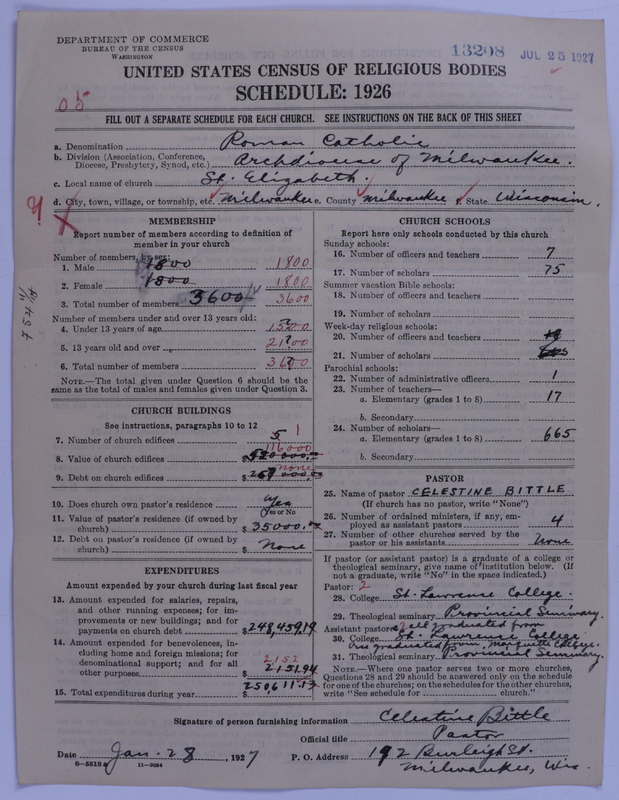 DEPARTMENT OF COMMERCE
BUREAU OF THE CENSUS
WASHINGTON
13208 JUL 25 1927
UNITED STATES CENSUS OF RELIGIOUS BODIES
SCHEDULE: 1926
05
FILL OUT A SEPARATE SCHEDULE FOR EACH CHURCH. SEE INSTRUCTIONS ON THE BACK OF THIS SHEET
a. Denomination Roman Catholic
b. Division (Association, Conference, Diocese, Presbytery, Synod, etc.) Archdiocese of Milwaukee.
c. Local name of church St. Elizabeth.
d. City, town, village, or township, etc. Milwaukee e. County Milwaukee f. State Wisconsin.
MEMBERSHIP
Report number of members according to definition of
member in your church
Number of members, by sex:
1. Male 1800 1800
2. Female 1800 1800
3. Total number of members 3600 3600
Number of members under and over 13 years old:
4. Under 13 years of age 1500
5. 13 years old and over 2100
6. Total number of members 3600
NOTE.—The total given under Question 6 should be the
same as the total of males and females given under Question 3.
CHURCH BUILDINGS
See instructions, paragraphs 10 to 12
7. Number of church edifices 5 1
8. Value of church edifices $ 116000
9. Debt on church edifices $ none
10. Does church own pastor's residence yes
Yes or No
11. Value of pastor's residence (if owned by
church) $ 35000.00
12. Debt on pastor's residence (if owned by
church) $ None
EXPENDITURES
Amount expended by your church during last fiscal year
13. Amount expended for salaries, repairs,
and other running expenses; for im-
provements or new buildings; and for
payments on church debt $ 248,459.19
14. Amount expended for benevolences, in-
cluding home and foreign missions; for
denominational support; and for all
other purposes $ 2152 2151.94
15. Total expenditures during year $ 250,611.13
CHURCH SCHOOLS
Report here only schools conducted by this church
Sunday schools:
16. Number of officers and teachers 7
17. Number of scholars 75
Summer vacation Bible schools:
18. Number of officers and teachers
19. Number of scholars
Week-day religious schools:
20. Number of officers and teachers
21. Number of scholars
Parochial schools:
22. Number of administrative officers 1
23. Number of teachers—
a. Elementary (grades 1 to 8) 17
b. Secondary
24. Number of scholars—
a. Elementary (grades 1 to 8) 665
b. Secondary
PASTOR
25. Name of pastor CELESTINE BITTLE
(If church has no pastor, write "None")
26. Number of ordained ministers, if any, em-
ployed as assistant pastors 4
27. Number of other churches served by the
pastor or his assistants None
If pastor (or assistant pastor) is a graduate of a college or
theological seminary, give name of institution below. (If
not a graduate, write "No" in the space indicated.)
Pastor: 2
28. College St. Lawrence College.
29. Theological seminary Provincial Seminary.
Assistant pastor: all graduated from
30. College St. Lawrence College
graduated from Marquette College.
31. Theological seminary Provincial Seminary.
NOTE.—Where one pastor serves two or more churches,
Questions 28 and 29 should be answered only on the schedule
for one of the churches; on the schedules for the other churches,
write "See schedule for church."
Signature of person furnishing information Celestine Bittle
Official title Pastor
Date Jan. 28, 1927 P. O. Address 192 Burleigh St.
Milwaukee, Wis.
8—5518a 11—9024